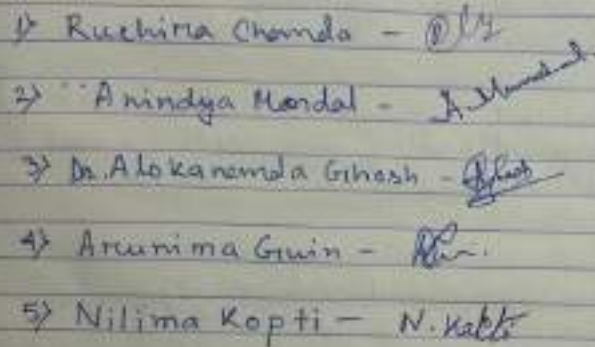 1) Ruchira Chanda -
2) Anindya Mondal - A. Mondal
3) Dr. Alokananda Ghosh - Ghosh
4) Arunima Guin -
5) Nilima Kopti - N. Kopti